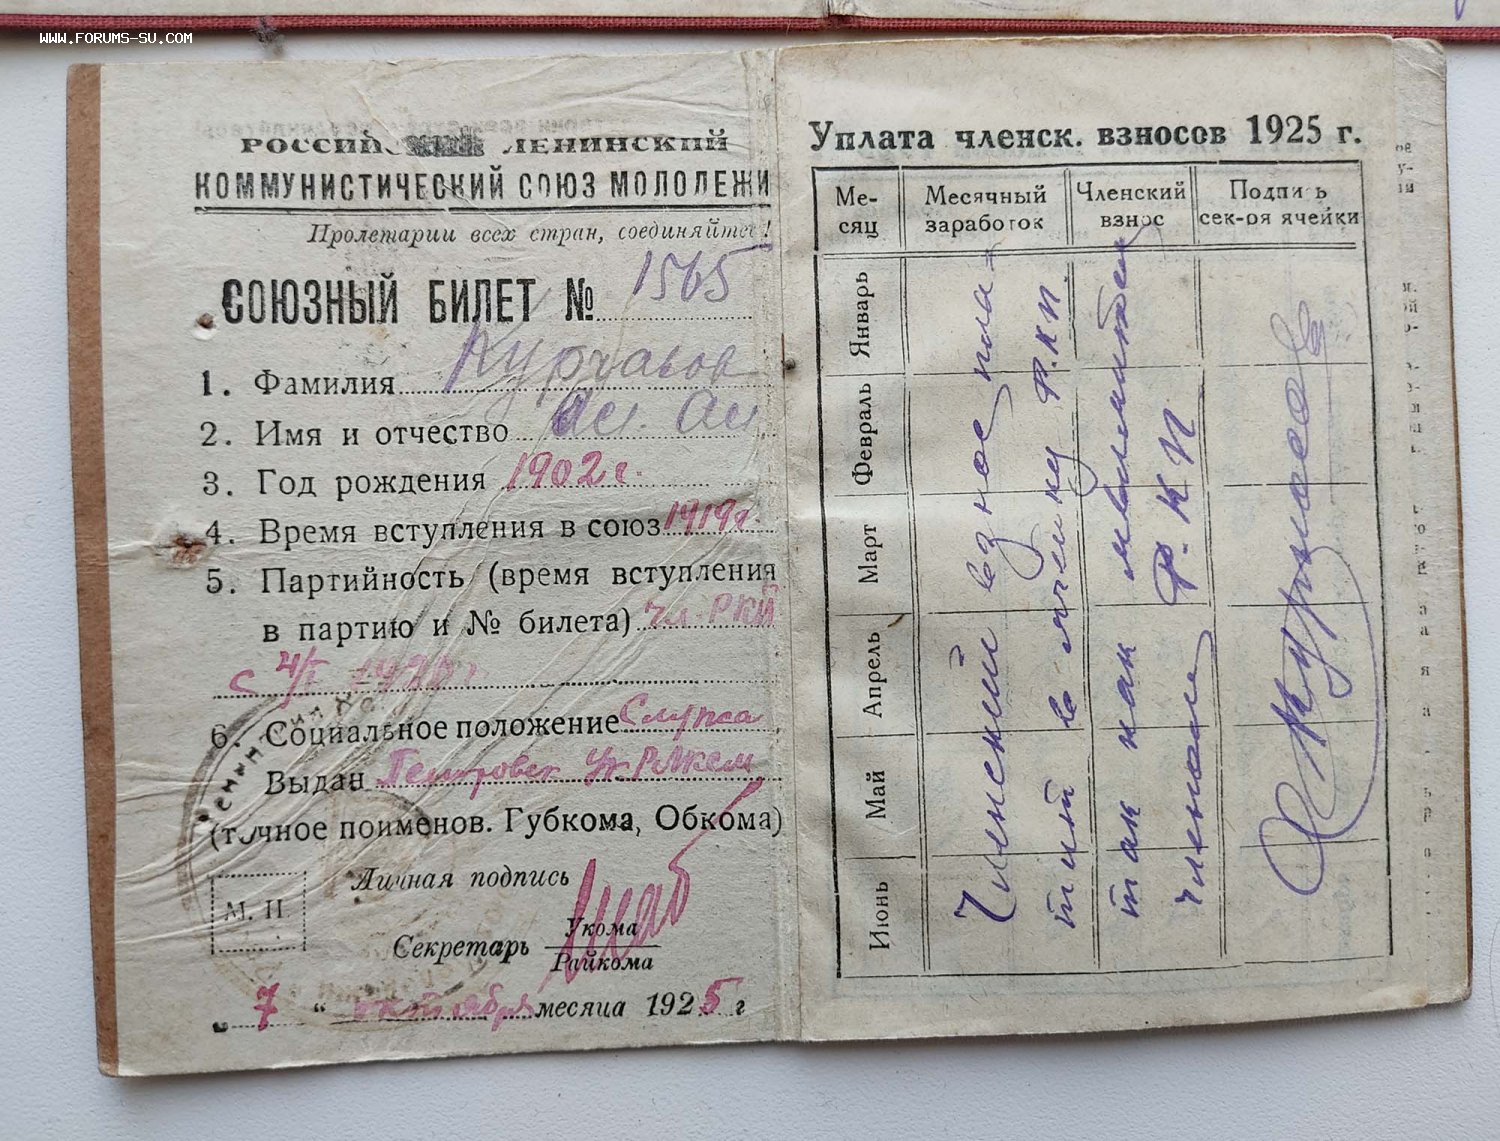 WWW.FORUMS-SU.COM
РОССИЙ ЛЕНИНСКИЙ
КОММУНИСТИЧЕСКИЙ СОЮЗ МОЛОДЕЖИ
Пролетарии всех стран, соединяйтесь!
СОЮЗНЫЙ БИЛЕТ № 1565
1. Фамилия
2. Имя и отчество Ал. Ал
3. Год рождения 1902 г.
4. Время вступления в союз 1919 г.
5. Партийность (время вступления
в партию и № билета) чл. РКП
с 4/I
6. Социальное положение Служа
Выдан Петровск Ук. РЛКСМ
(точное поименов. Губкома, Обкома)
Личная подпись
М. П.
Секретарь Укома
Райкома
„ 7 “ октября месяца 1925 г
Уплата членск. взносов 1925 г.
Месяц
Месячный заработок
Членский взнос
Подпись сек-ря ячейки
Январь
Февраль
Март
Апрель
Май
Июнь
Членский взнос пла-
тит в ячейку Р.К.П.
так как является
членом Р.К.П